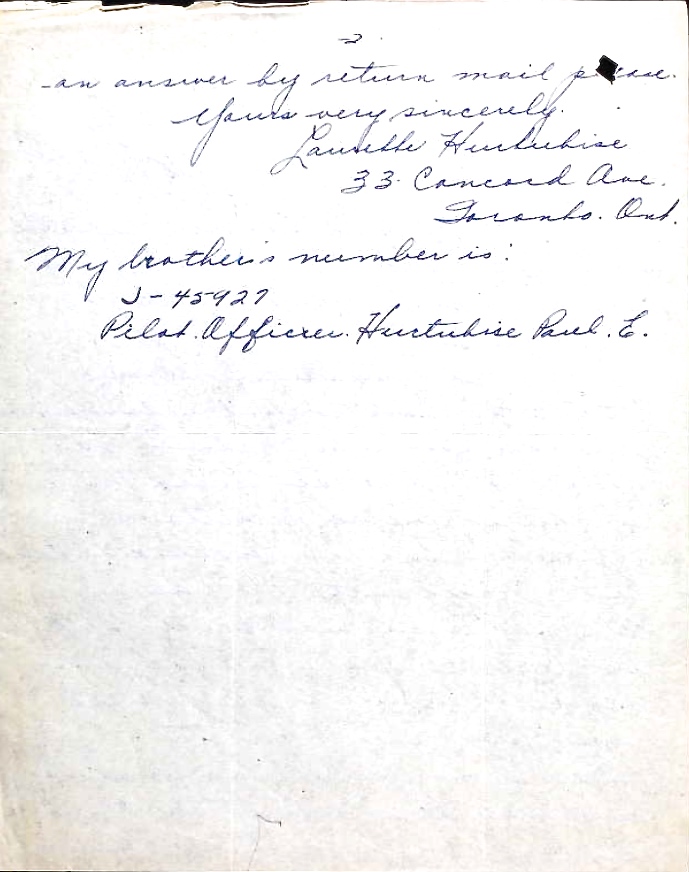 2.
an answer by return mail please.
Yours very sincerely.
Laurette Hurtubise
33 Concord Ave.
Toronto. Ont.
My brother's number is:
J-45927
Pilot. Officer. Hurtubise Paul. E.